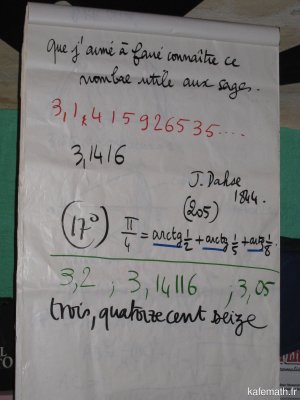 que j'aime à faire connaître ce
nombre utile aux sages.
3,1,415926535....
3,1416
J. Dahse
1844.
(205)
(17°) π/4 = arctg 1/2 + arctg 1/5 + arctg 1/8.
3,2 ; 3,14116 ; 3,05
trois, quatorze cent seize
kafemath.fr